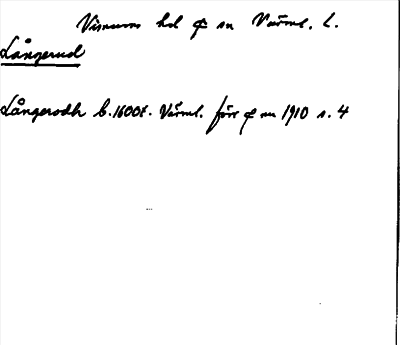 Visnums hd ⊄ sn Värml. L.
Långerud
Långerodh b. 1600t. Värml. förr ⊄ sn 1910 s. 4